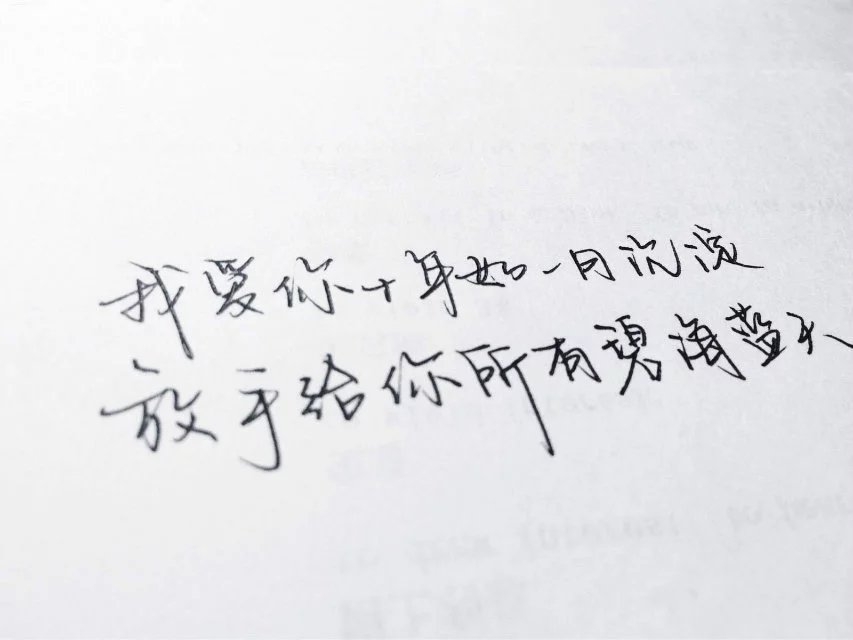 我爱你十年如一日沉淀
放手给你所有碧海蓝天